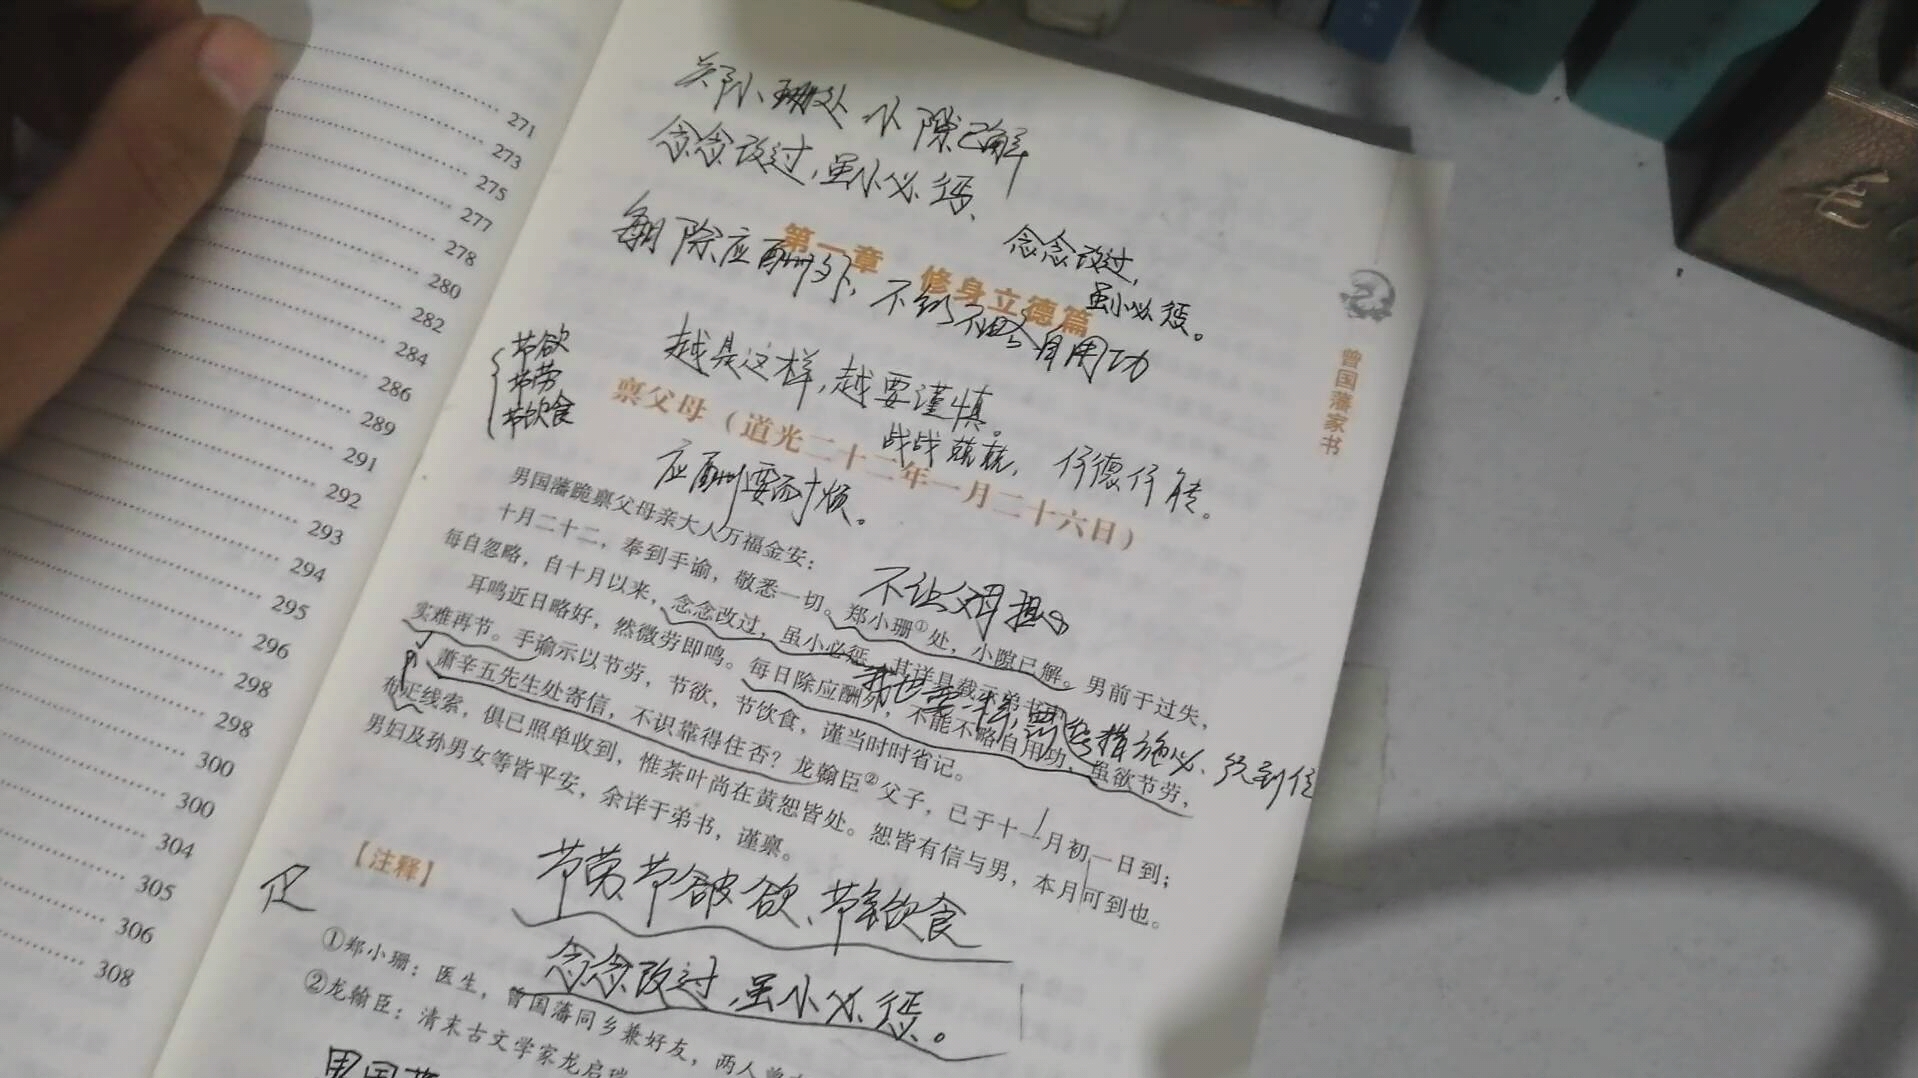 271
273
275
277
278
280
282
284
286
289
291
292
293
294
295
296
298
298
300
300
304
305
306
308
小珊处 小隙已解
念念改过，虽小必惩、
每日除应酬外，不能不略自用功
第一章 修身立德篇
念念改过，
虽小必惩。
越是这样，越要谨慎。
节欲
节劳
节饮食
禀父母（道光二十二年一月二十六日）
战战兢兢，
应酬要耐烦。
曾国藩家书
男国藩跪禀父母亲大人万福金安：
十月二十二，奉到手谕，敬悉一切。郑小珊①处，小隙已解。男前于过失，
每自忽略，自十月以来，念念改过，虽小必惩，其详具载示弟书中。
耳鸣近日略好，然微劳即鸣。每日除应酬外，不能不略自用功，虽欲节劳，
实难再节。手谕示以节劳，节欲，节饮食，谨当时时省记。
萧辛五先生处寄信，不识靠得住否？龙翰臣②父子，已于十一月初一日到；
布疋线索，俱已照单收到，惟茶叶尚在黄恕皆处。恕皆有信与男，本月可到也。
男妇及孙男女等皆平安，余详于弟书，谨禀。
不让父母担心
措施必须到位
【注释】
节劳、节欲、节饮食
念念改过，虽小必惩。
①郑小珊：医生，曾国藩同乡兼好友，两人曾
②龙翰臣：清末古文学家龙启瑞
男国藩